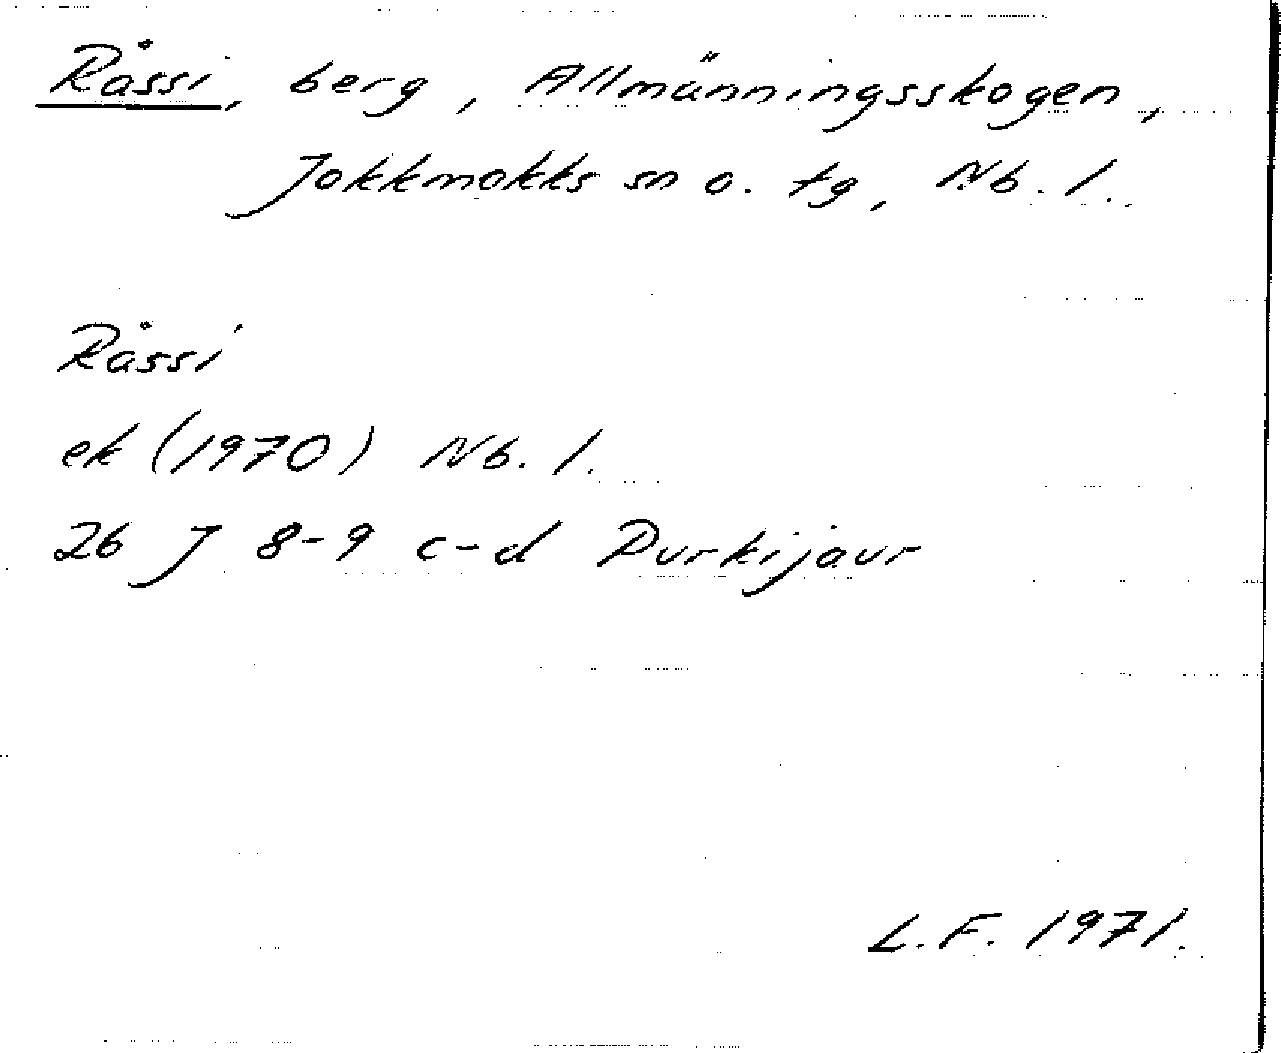 Råssi, berg, Allmänningsskogen,
Jokkmokks sn o. tg, Nb. l.
Råssi
ek (1970) Nb. l.
26 J 8-9 c-d Purkijaur
L.F. 1971.